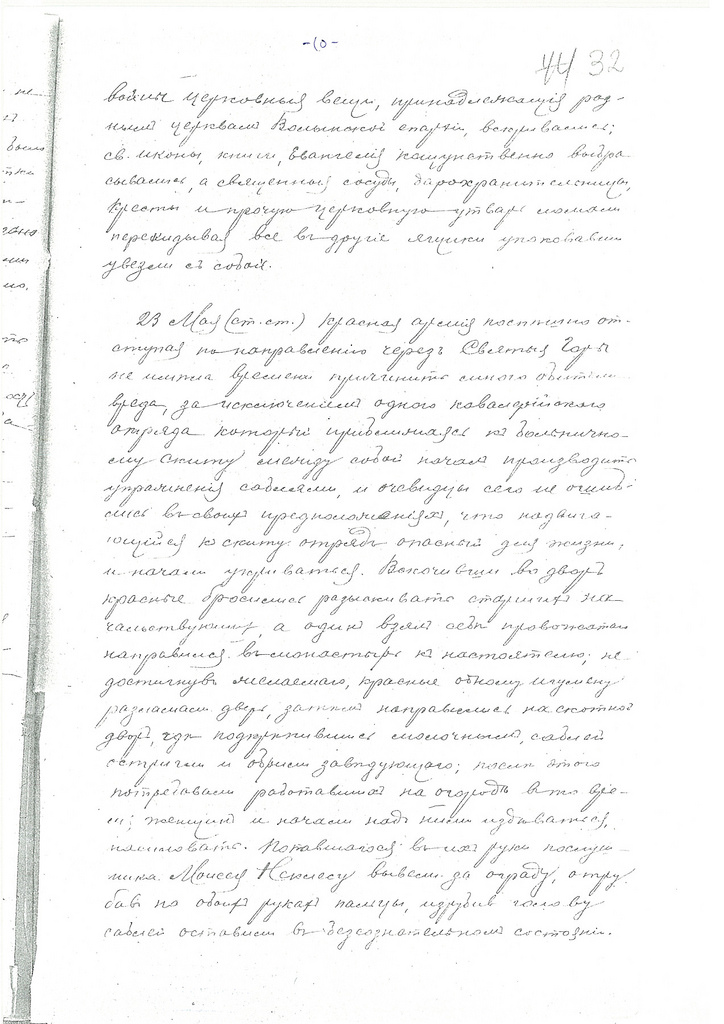 -10-
44 32
войны церковныя вещи, принадлежащія раз-
нымъ церквамъ Волынской епархіи, вскрывались;
св. иконы, книги, Евангелія кощунственно выбра
сывались, а священныя сосуды, дарохранительницы,
кресты и прочую церковную утварь ломали
перекидывая все въ другіе ящики упаковавши
увезли съ собой.
23 Мая (ст. ст.) Красная армія поспешно от-
ступая по направленію черезъ Святыя Горы
не имѣла времени причинить много обители
вреда, за исключеніемъ одного кавалерійского
отряда который приближаясь къ больнично-
му скиту между собой началъ производить
упражненія саблями, и очевидцы сего не ошиб-
лись въ своихъ предположеніяхъ, что надвига-
ющійся къ скиту отрядъ опасный для жизни,
и начали укрываться. Вскочивши во дворъ
красные бросились разыскивать старшихъ
начальствующихъ, а одинъ взявъ себѣ провожатаго
направился въ монастырь къ настоятелю, не
достигнувъ желаемаго, красные одному игумену
разломали дверь, затѣмъ направились на скотной
дворъ, гдѣ подкрѣпившись молочнымъ, саблей
остригли и обрили завѣдующаго; послѣ этого
потребовали работавшихъ на огородѣ въ то вре-
мя женщинъ и начали надъ ними издѣваться,
насиловать. Попавшагося въ ихъ руки послуш-
ника Моисея вывели за ограду, отру
бивъ на обоихъ рукахъ пальцы, изрубивъ голову
саблей оставили въ безсознательномъ состояніи.